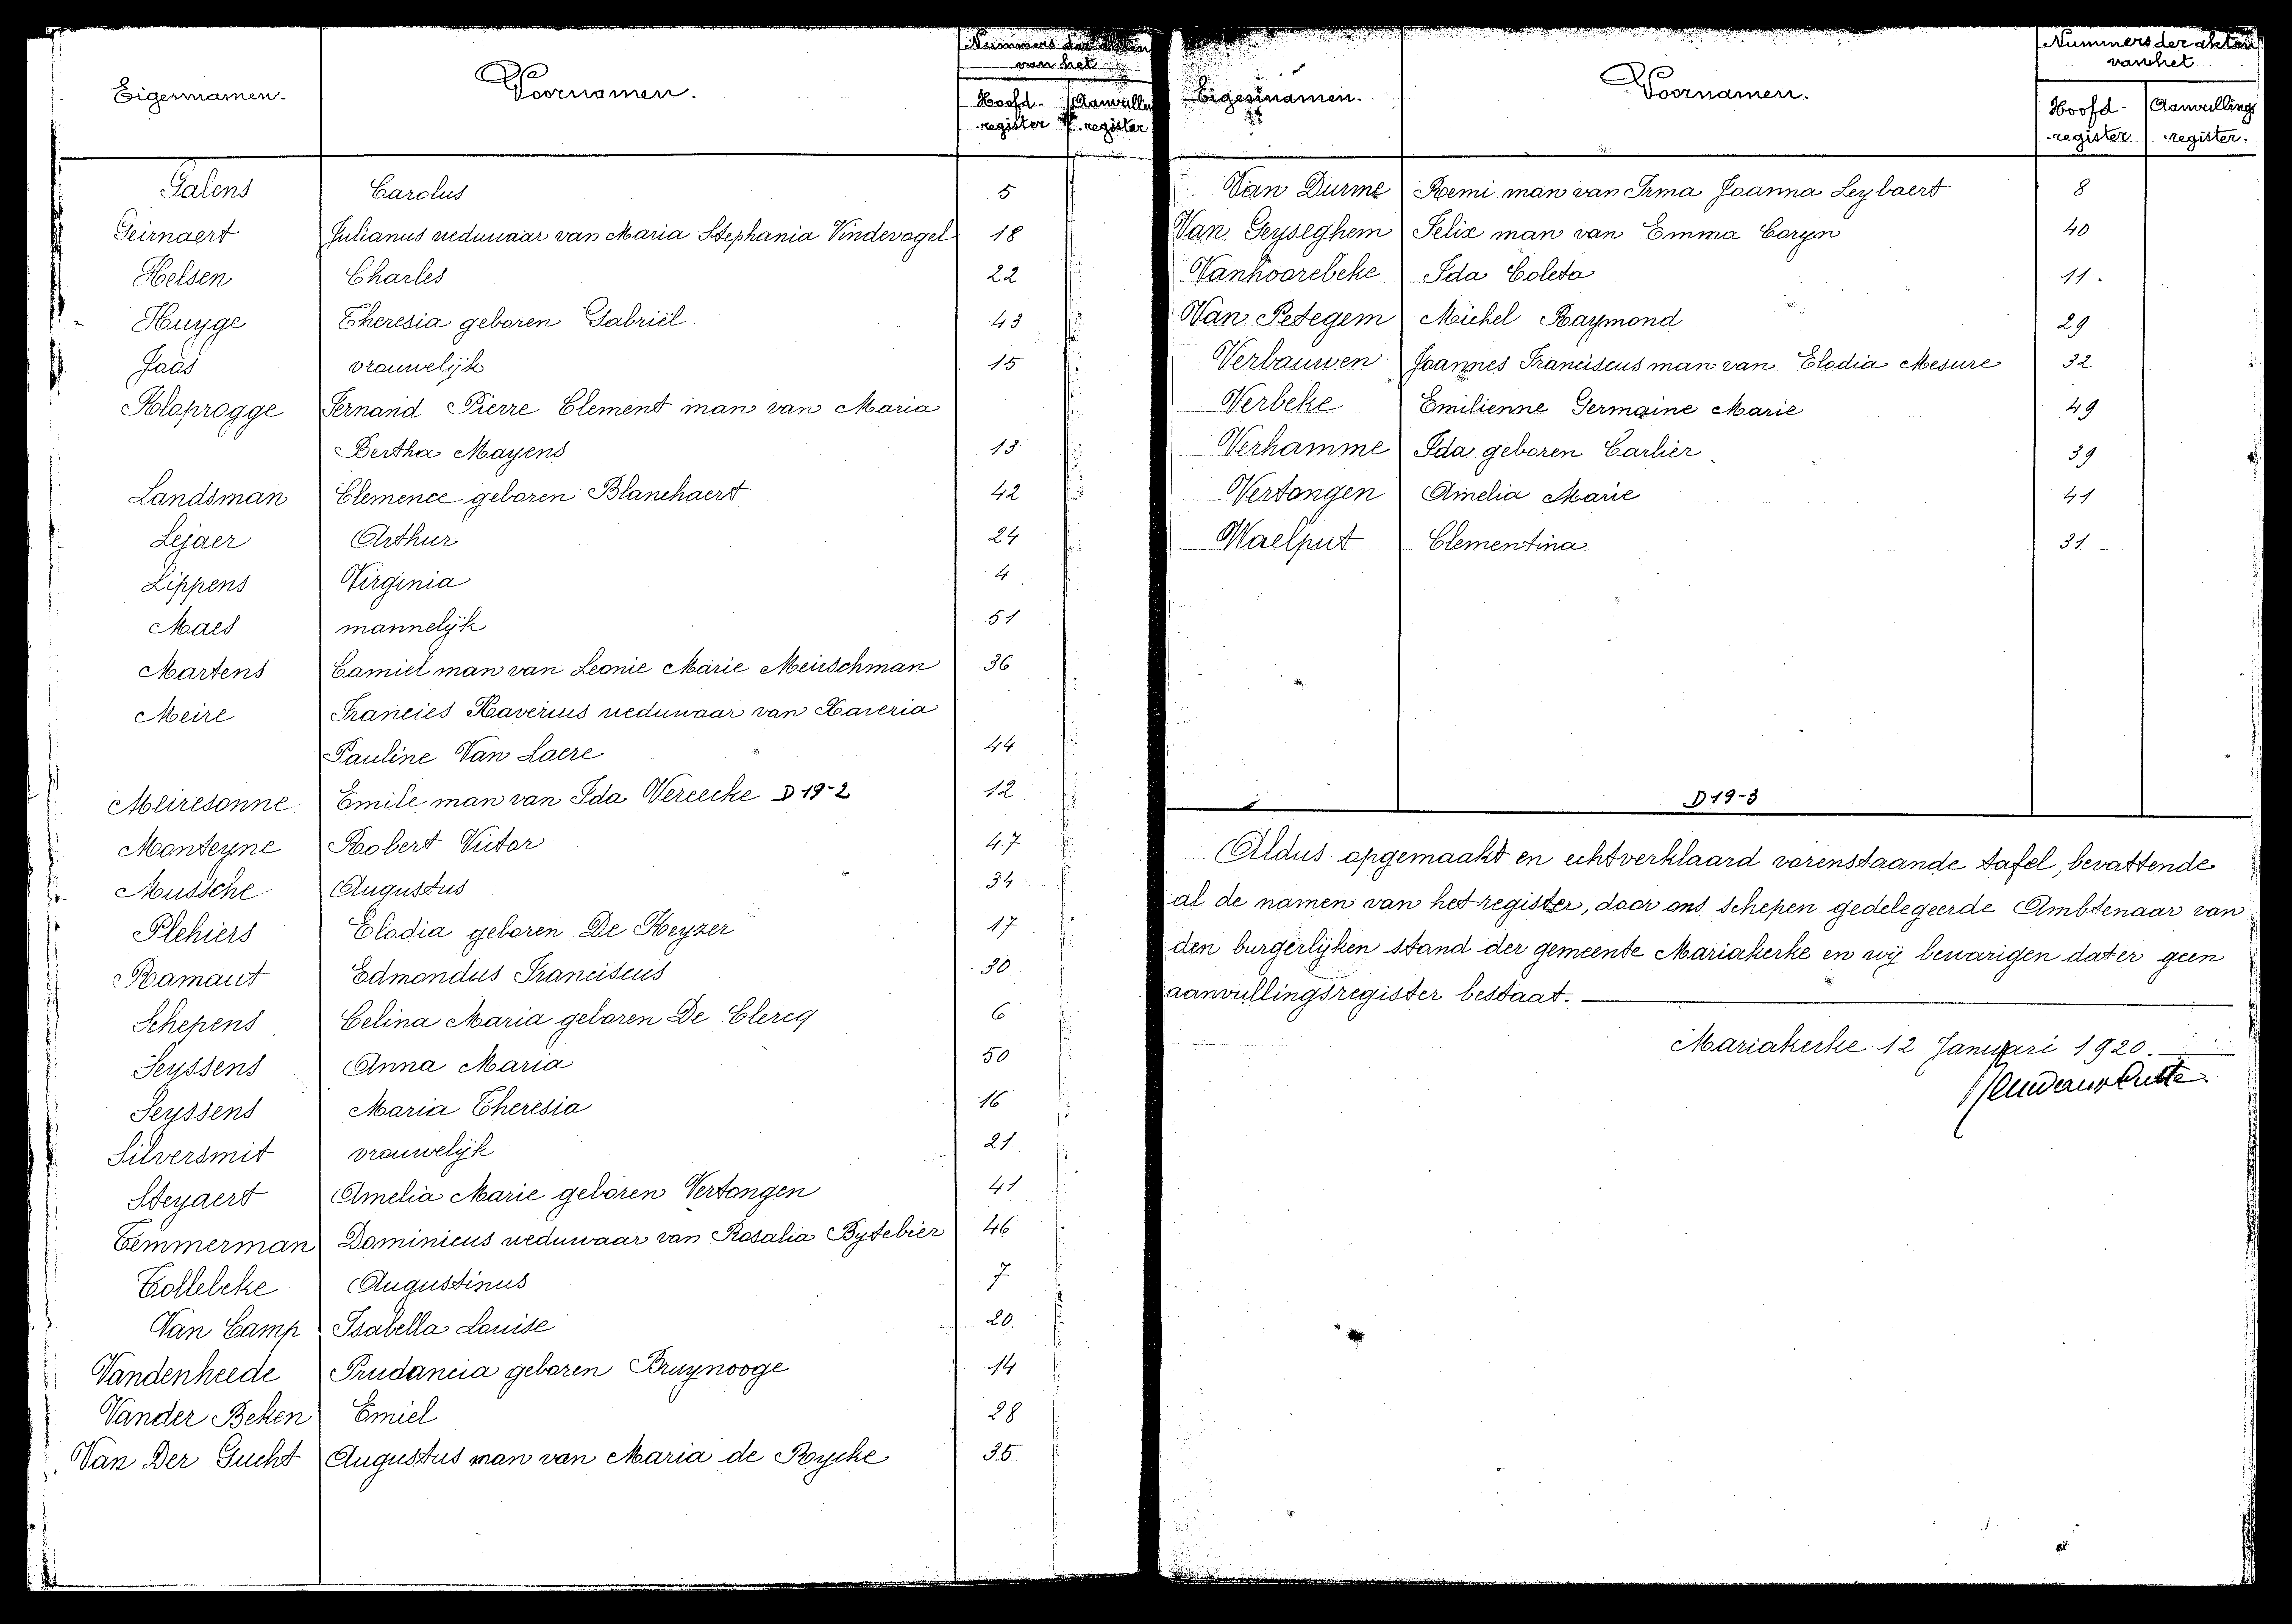 Eigennamen. Voornamen. Nummers der akten van het
Hoofd-register Aanvullings register
Galens Carolus 5
Geirnaert Julianus weduwaar van Maria Stephania Vindevogel 18
Helsen Charles 22
Huyge Theresia geboren Gabriël 43
Jaas vrouwelijk 15
Klaprogge Fernand Pierre Clement man van Maria
Bertha Mayens 13
Landsman Clemence geboren Blanchaert 42
Lejaer Arthur 24
Lippens Virginia 4
Maes mannelijk 51
Martens Camiel man van Leonie Marie Meirschman 36
Meire Francies Xaverius weduwaar van Xaveria
Pauline Van Laere 44
Meiresonne Emile man van Ida Vereecke D 19-2 12
Monteyne Robert Victor 47
Mussche Augustus 34
Plehiers Elodia geboren De Keyzer 17
Ramaut Edmondus Franciscus 30
Schepens Celina Maria geboren De Clercq 6
Seyssens Anna Maria 50
Seyssens Maria Theresia 16
Silversmit vrouwelijk 21
Steyaert Amelia Marie geboren Vertongen 41
Temmerman Dominicus weduwaar van Rosalia Bytebier 46
Tollebeke Augustinus 7
Van Camp Isabella Louise 20
Vandenheede Prudancia geboren Bruynooge 14
Vander Beken Emiel 28
Van Der Gucht Augustus man van Maria de Rycke 35
Eigennamen. Voornamen. Nummers der akten van het
Hoofd-register Aanvullings-register.
Van Durme Remi man van Irma Joanna Leybaert 8
Van Geyseghem Felix man van Emma Coryn 40
Vanhoorebeke Ida Coleta 11.
Van Petegem Michel Raymond 29
Verbauwen Joannes Franciscus man van Elodia Mesure 32
Verbeke Emilienne Germaine Marie 49
Verhamme Ida geboren Carlier 39
Vertongen Amelia Marie 41
Waelput Clementina 31
D 19-3
Aldus opgemaakt en echtverklaard vorenstaande tafel, bevattende
al de namen van het register, door ons schepen gedelegeerde Ambtenaar van
den burgerlijken stand der gemeente Mariakerke en wij bewarigen dat er geen
aanvullingsregister bestaat.
Mariakerke 12 Januari 1920.